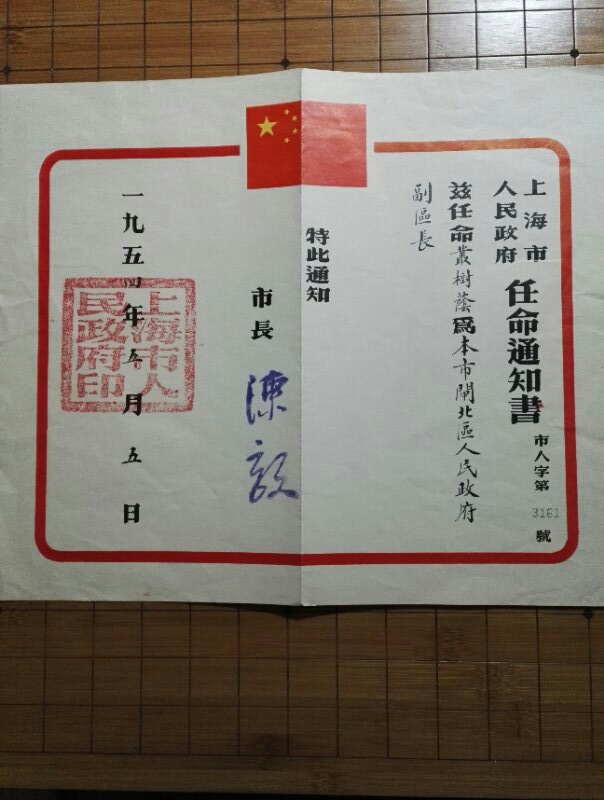 上海市
人民政府
任命通知書
市人字第3161號
茲任命叢樹蔭爲本市閘北區人民政府
副區長
特此通知
市長 陳毅
一九五四年五月五日
上海市人
民政府印